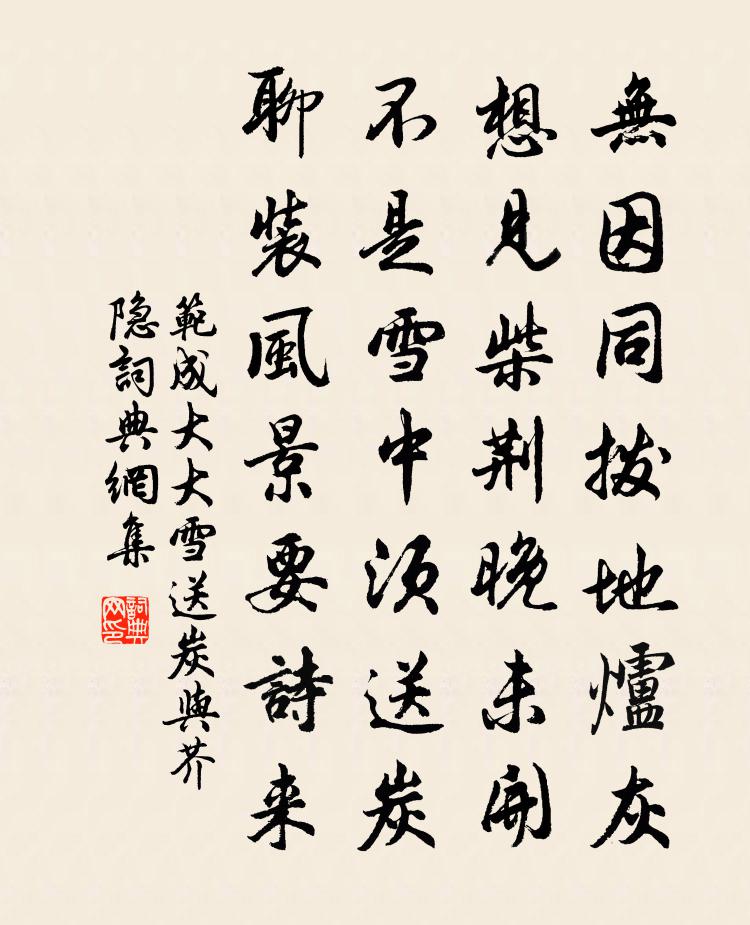 無因同拨地爐灰
想見柴荆晚未開
不是雪中須送炭
聊裝風景要詩来
範成大大雪送炭與芥
隐詞典網集
詞典
网印